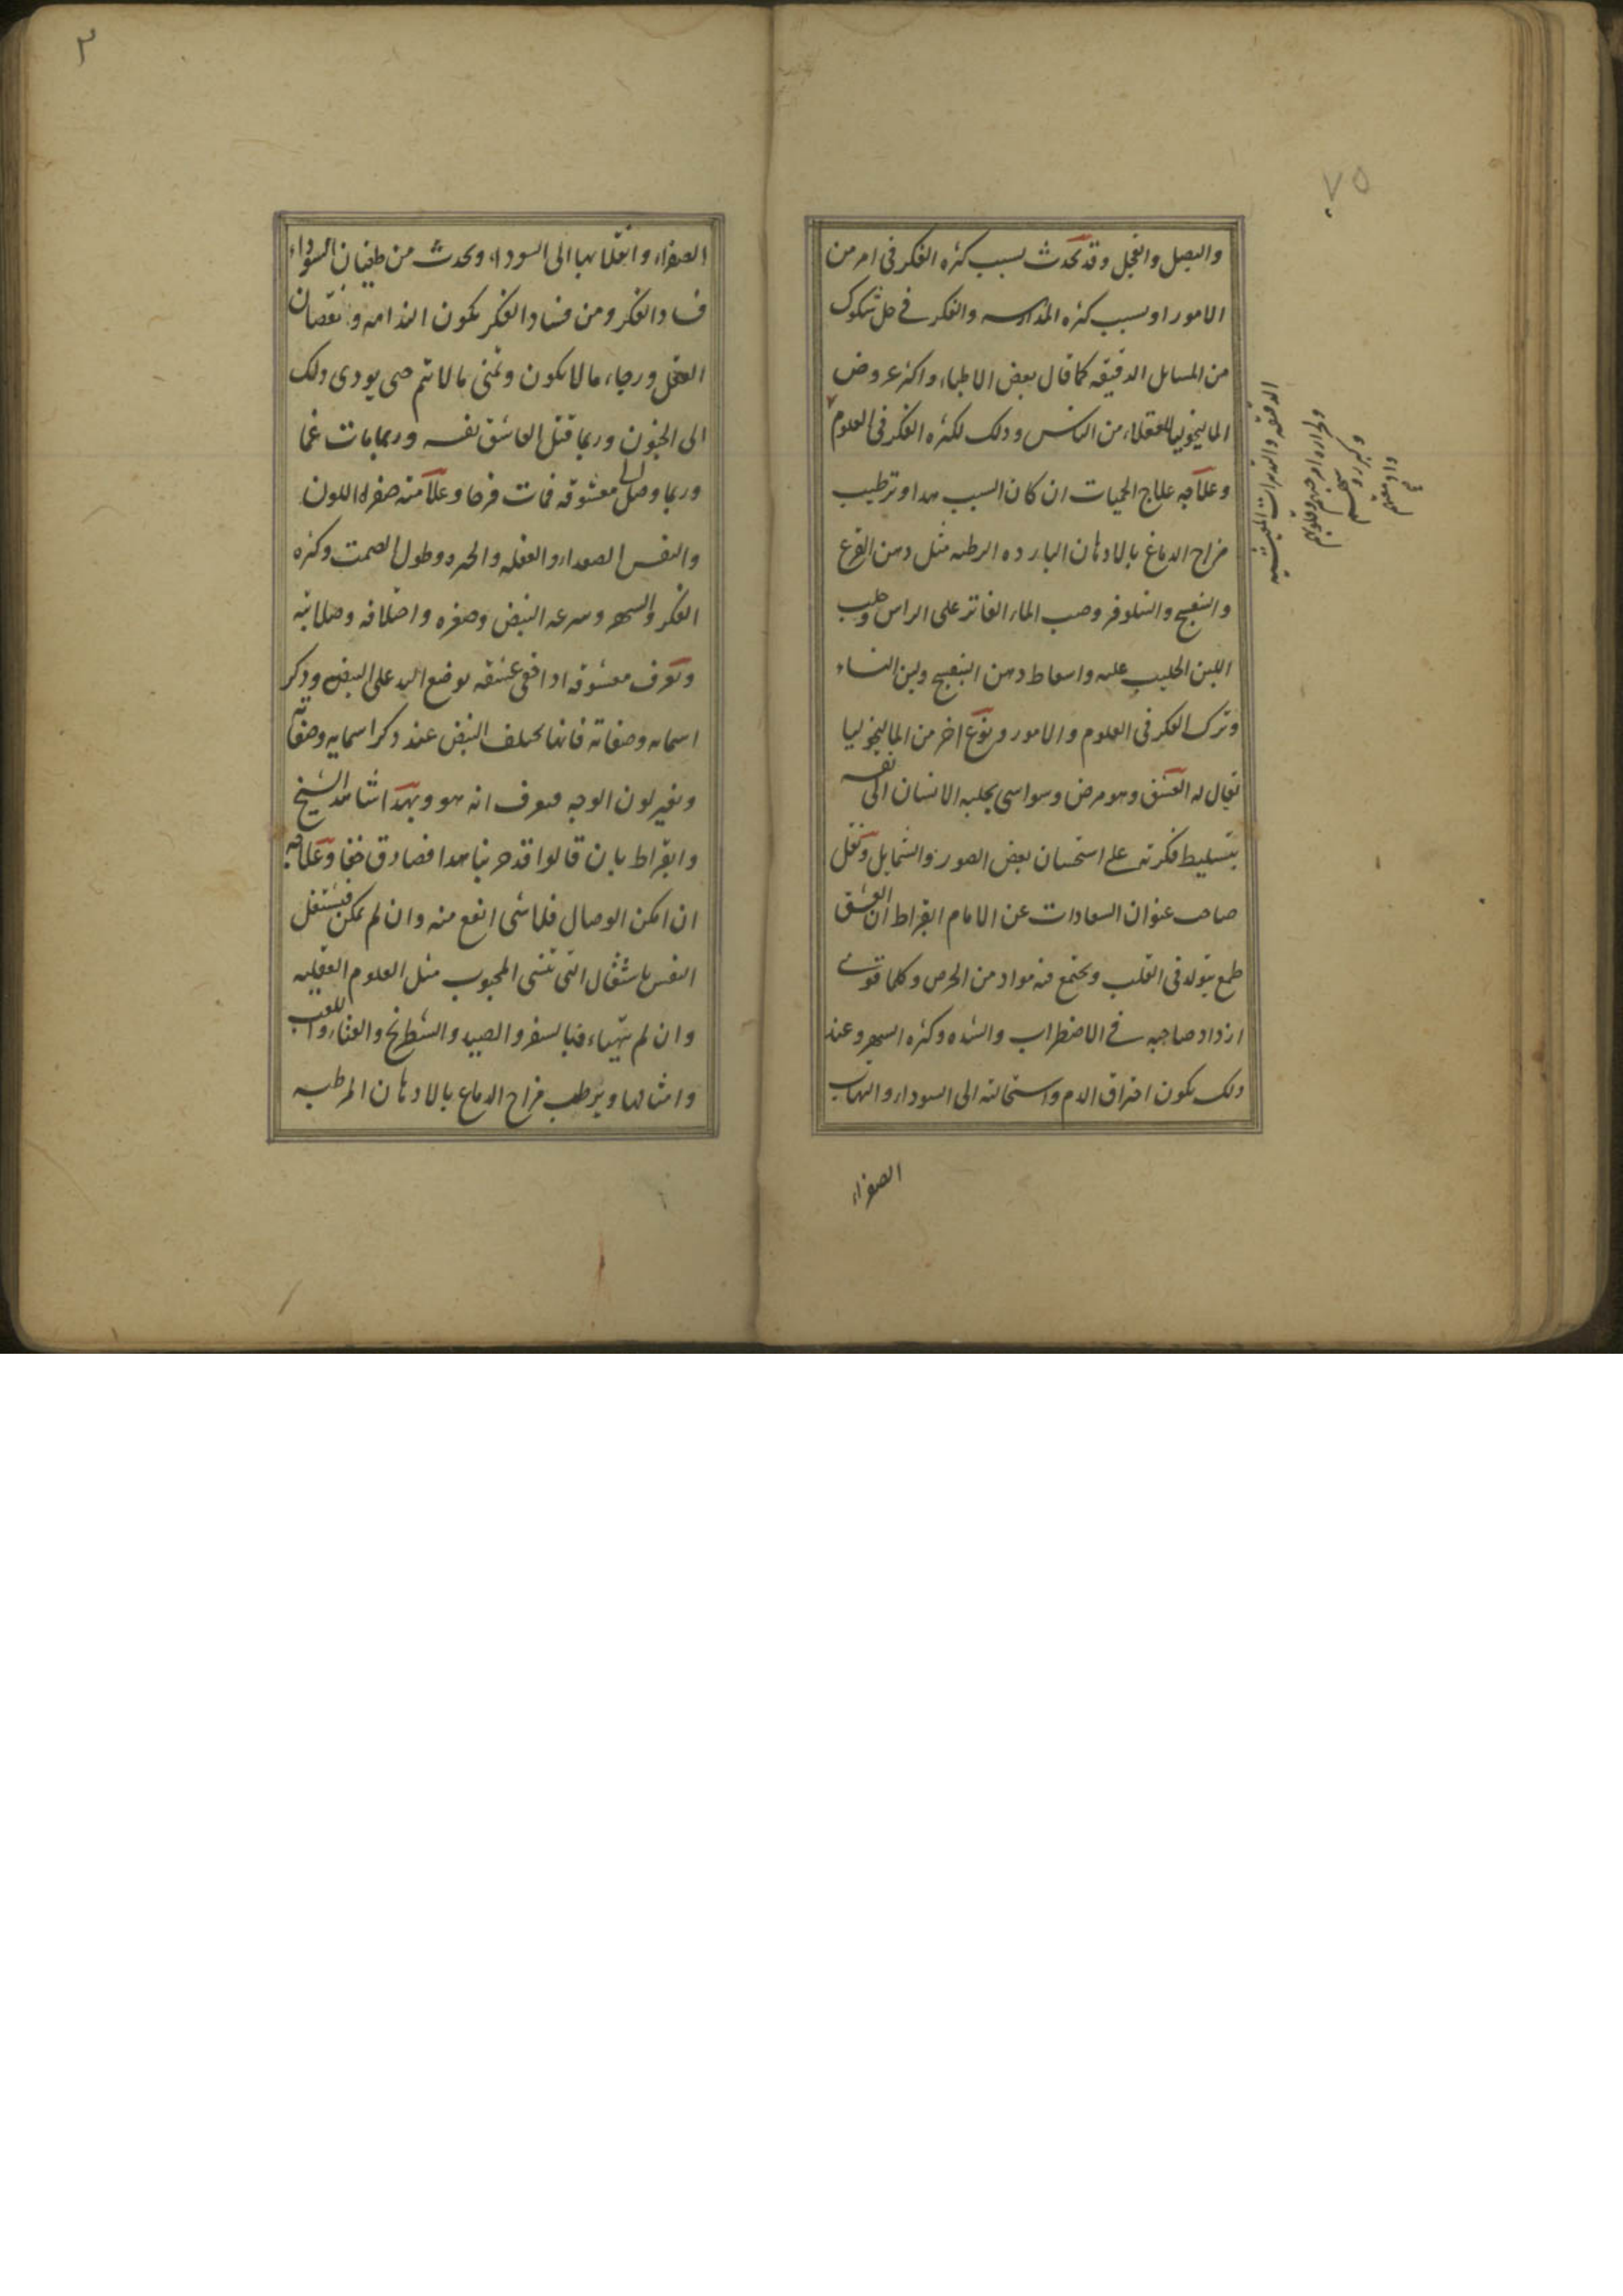 ٧٥
والبصل والفجل وقد يحدث بسبب كثره الفكر فى امر من
الامور او بسبب كثره المدارسه والفكر فى حل شكوك
من المسايل الدقيقه كما قال بعض الاطباء واكثر عروض
الماليخوليا للعقلاء من الناس وذلك لكثره الفكر فى العلوم
وعلاجه علاج الحميات ان كان السبب هذا وترطيب
مزاج الدماغ بالادهان البارده الرطبه مثل دهن القرع
والبنفسج والنيلوفر وصب الماء الفاتر على الراس وحلب
اللبن الحليب عليه واسعاط دهن البنفسج ولبن النساء
وترك الفكر فى العلوم والامور ونوع اخر من الماليخوليا
يقال له العشق وهو مرض وسواسى يجلبه الانسان الى نفسه
بتسليط فكرته على استحسان بعض الصور والشمايل ونقل
صاحب عنوان السعادات عن الامام ابقراط ان العشق
طمع يتولد فى القلب ويجتمع فيه مواد من الحرص وكلما قوى
ازداد صاحبه فى الاضطراب والشده وكثره السهر وعند
ذلك يكون احتراق الدم واستحالته الى السوداء والتهاب
الصفراء
الدقيقه والتدبيرات
٣
الصفراء وانقلابها الى السوداء ويحدث من طغيان السوداء
فساد الفكر ومن فساد الفكر يكون الندامه ونقصان
العقل ورجاء ما لا يكون وتمنى ما لا يتم حتى يودى ذلك
الى الجنون وربما قتل العاشق نفسه وربما مات غما
وربما وصل الى معشوقه فمات فرحا وعلامته صفره اللون
والنفس الصعداء والغفله والحده وطول الصمت وكثره
الفكر والسهر وسرعه النبض وصغره واختلافه وصلابته
ويعرف معشوقه اذا اخفى عشقه بوضع اليد على النبض وذكر
اسمائه وصفاته فانها يختلف النبض عند ذكر اسمايه وصفاته
وتغير لون الوجه فيعرف انه هو وبهذا الشيخ
وابقراط بان قالوا قد جربنا هذا فصادق حقا وعلاجه
ان امكن الوصال فلا شى انفع منه وان لم يمكن فيشتغل
النفس باشغال التى تنسى المحبوب مثل العلوم العقليه
وان لم يتهياء فبالسفر والصيد والشطرنج والغناء واللعب
وامثالها ويرطب مزاج الدماغ بالادهان المرطبه